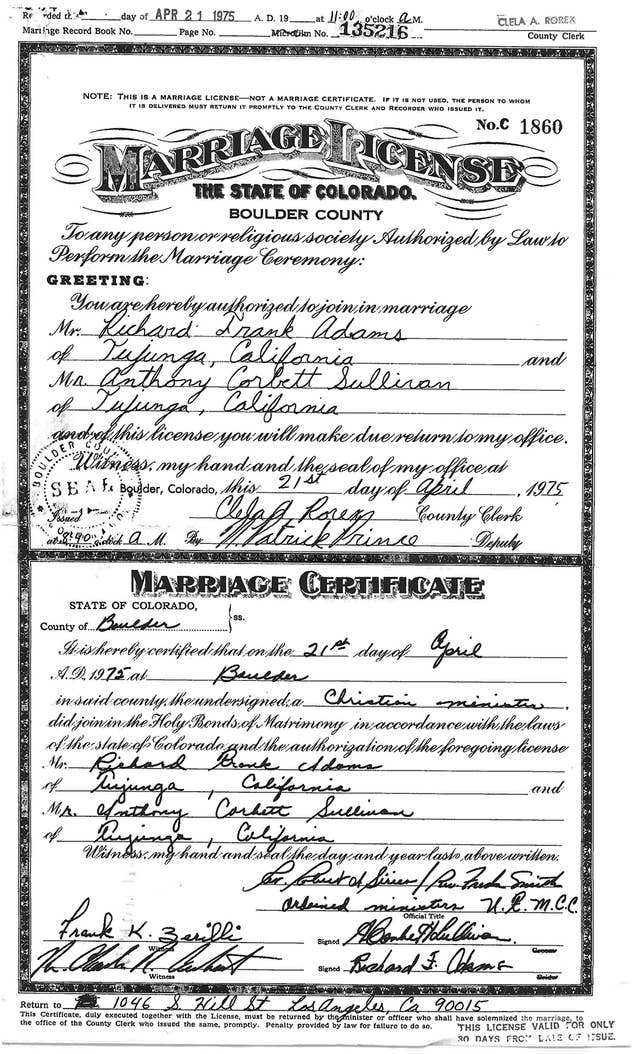 day of APR 21 1975 A. D. 19 at 11:00 o'clock A M. CLELA A. ROREX
Marriage Record Book No. Page No. Microfilm No. 135216 County Clerk
NOTE: THIS IS A MARRIAGE LICENSE—NOT A MARRIAGE CERTIFICATE. IF IT IS NOT USED, THE PERSON TO WHOM
IT IS DELIVERED MUST RETURN IT PROMPTLY TO THE COUNTY CLERK AND RECORDER WHO ISSUED IT.
No. C 1860
MARRIAGE LICENSE
THE STATE OF COLORADO.
BOULDER COUNTY
To any person or religious society Authorized by Law to
Perform the Marriage Ceremony:
GREETING:
You are hereby authorized to join in marriage
Mr. Richard Frank Adams
of Tujunga, California and
Mr. Anthony Corbett Sullivan
of Tujunga, California
and of this license you will make due return to my office.
Witness, my hand and the seal of my office, at
BOULDER COUNTY
SEAL
Boulder, Colorado, this 21st day of April, 1975
Issued Clela A Rorex County Clerk
at o'clock A M. By Patrick Prince Deputy
MARRIAGE CERTIFICATE
STATE OF COLORADO,
County of Boulder ss.
It is hereby certified that on the 21st day of April
A.D. 1975 at Boulder
in said county, the undersigned, a Christian minister,
did join in the Holy Bonds of Matrimony in accordance with the laws
of the state of Colorado and the authorization of the foregoing license
Mr. Richard Frank Adams
of Tujunga, California and
Mr. Anthony Corbett Sullivan
of Tujunga, California
Witness, my hand and seal the day and year last above written.
Robert Sirico / Rev. Freda Smith
Ordained ministers U.F.M.C.C.
Official Title
Frank K. Zerilli Signed A Corbett Sullivan
Witness Groom
Signed Richard F. Adams
Witness Bride
Return to 1046 S. Hill St Los Angeles, Ca 90015
This Certificate, duly executed together with the License, must be returned by the minister or officer who shall have solemnized the marriage, to
the office of the County Clerk who issued the same, promptly. Penalty provided by law for failure to do so.
THIS LICENSE VALID FOR ONLY
30 DAYS FROM DATE OF ISSUE.